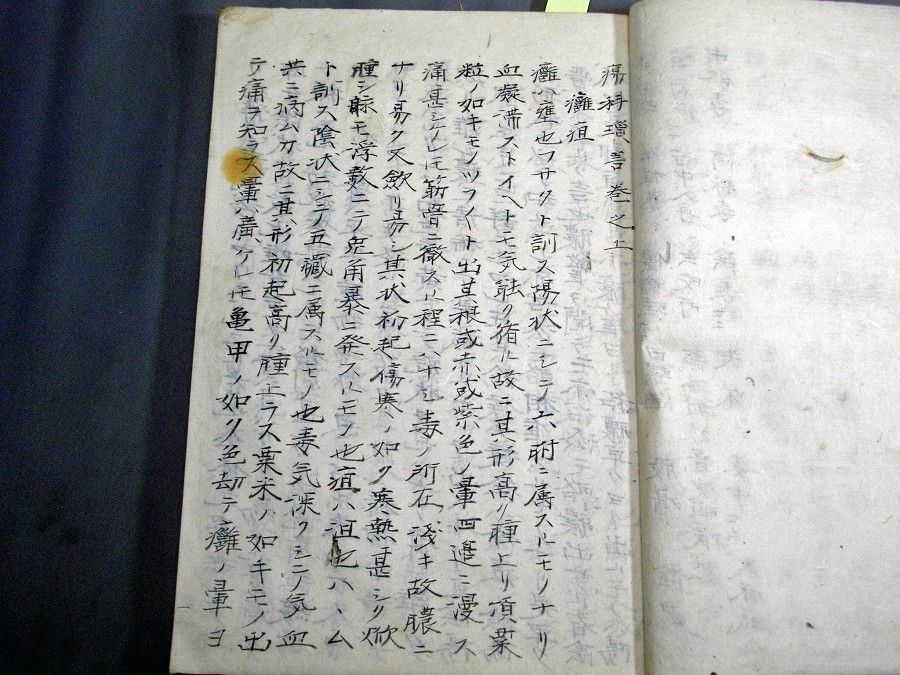 瘍科瑣言巻之上
癰疽
癰ハ壅也フサクト訓ス陽状ニシテ六腑ニ属スルモノナリ
血凝滞ストイヘトモ気能ク循ル故ニ其形高ク腫上リ頂粟
粒ノ如キモノツフ〳〵ト出其根或赤或紫色ノ暈四邉ニ漫ス
痛甚シケレモ筋骨ニ徹スル程ニハナシ毒ノ所在浅キ故膿ニ
ナリ易ク又歛リ易シ其状初起傷寒ノ如ク寒熱甚シク焮
腫シ脉モ浮数ニテ兎角暴ニ発スルモノ也疽ハ沮也ハヽム
ト訓ス陰状ニシテ五臓ニ属スルモノ也毒気深クシテ気血
共ニ病ム故ニ其形初起高ク腫上ラス粟米ノ如キモノ出
テ痛ヲ知ラス暈ハ廣ケレモ亀甲ノ如ク色却テ癰ノ暈ヨ